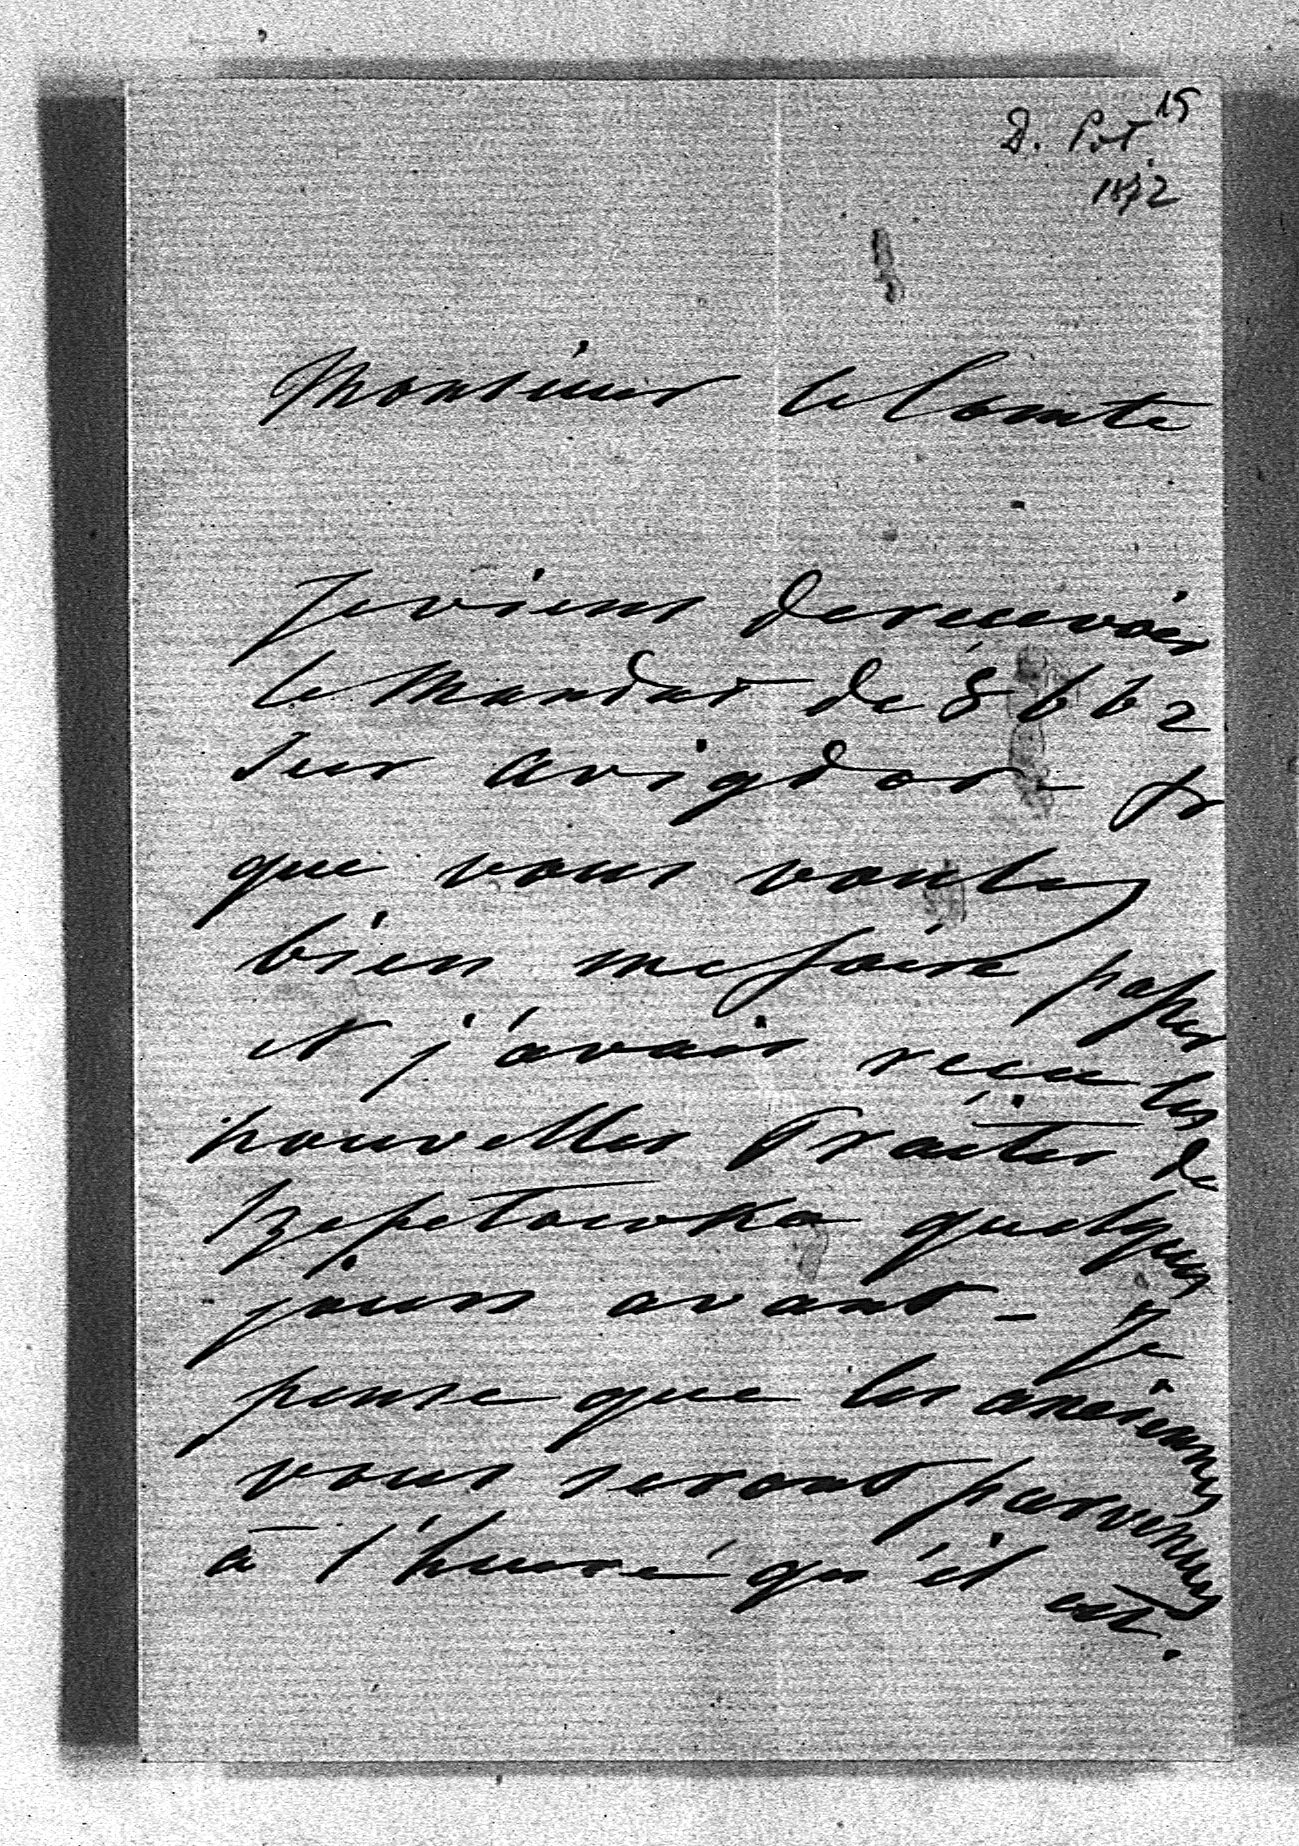 D. Pot. 15
1872
Monsieur le Comte
Je viens de recevoir
le mandat de 8662
sur Avigdor - fr
que vous voulez
bien me faire payer
et j'avais reçu les
nouvelles Traites de
Szepetowka quelques
jours avant - Je
pense que les anciennes
vous seront parvenues
à l'heure qu'il est.